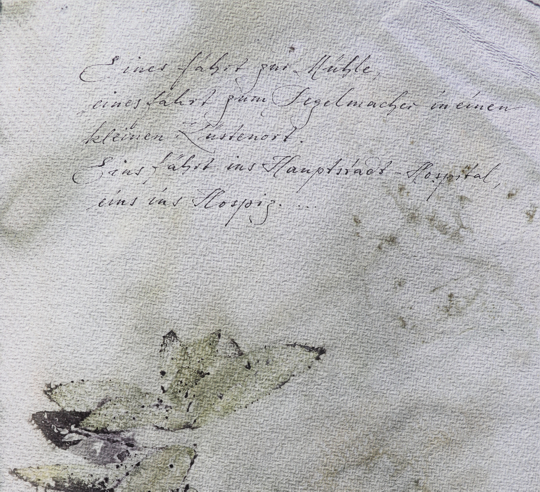 Eines fährt zur Mühle,
eines fährt zum Segelmacher in einen
kleinen Küstenort.
Eins fährt ins Hauptstadt-Hospital,
eins ins Hospiz. ...